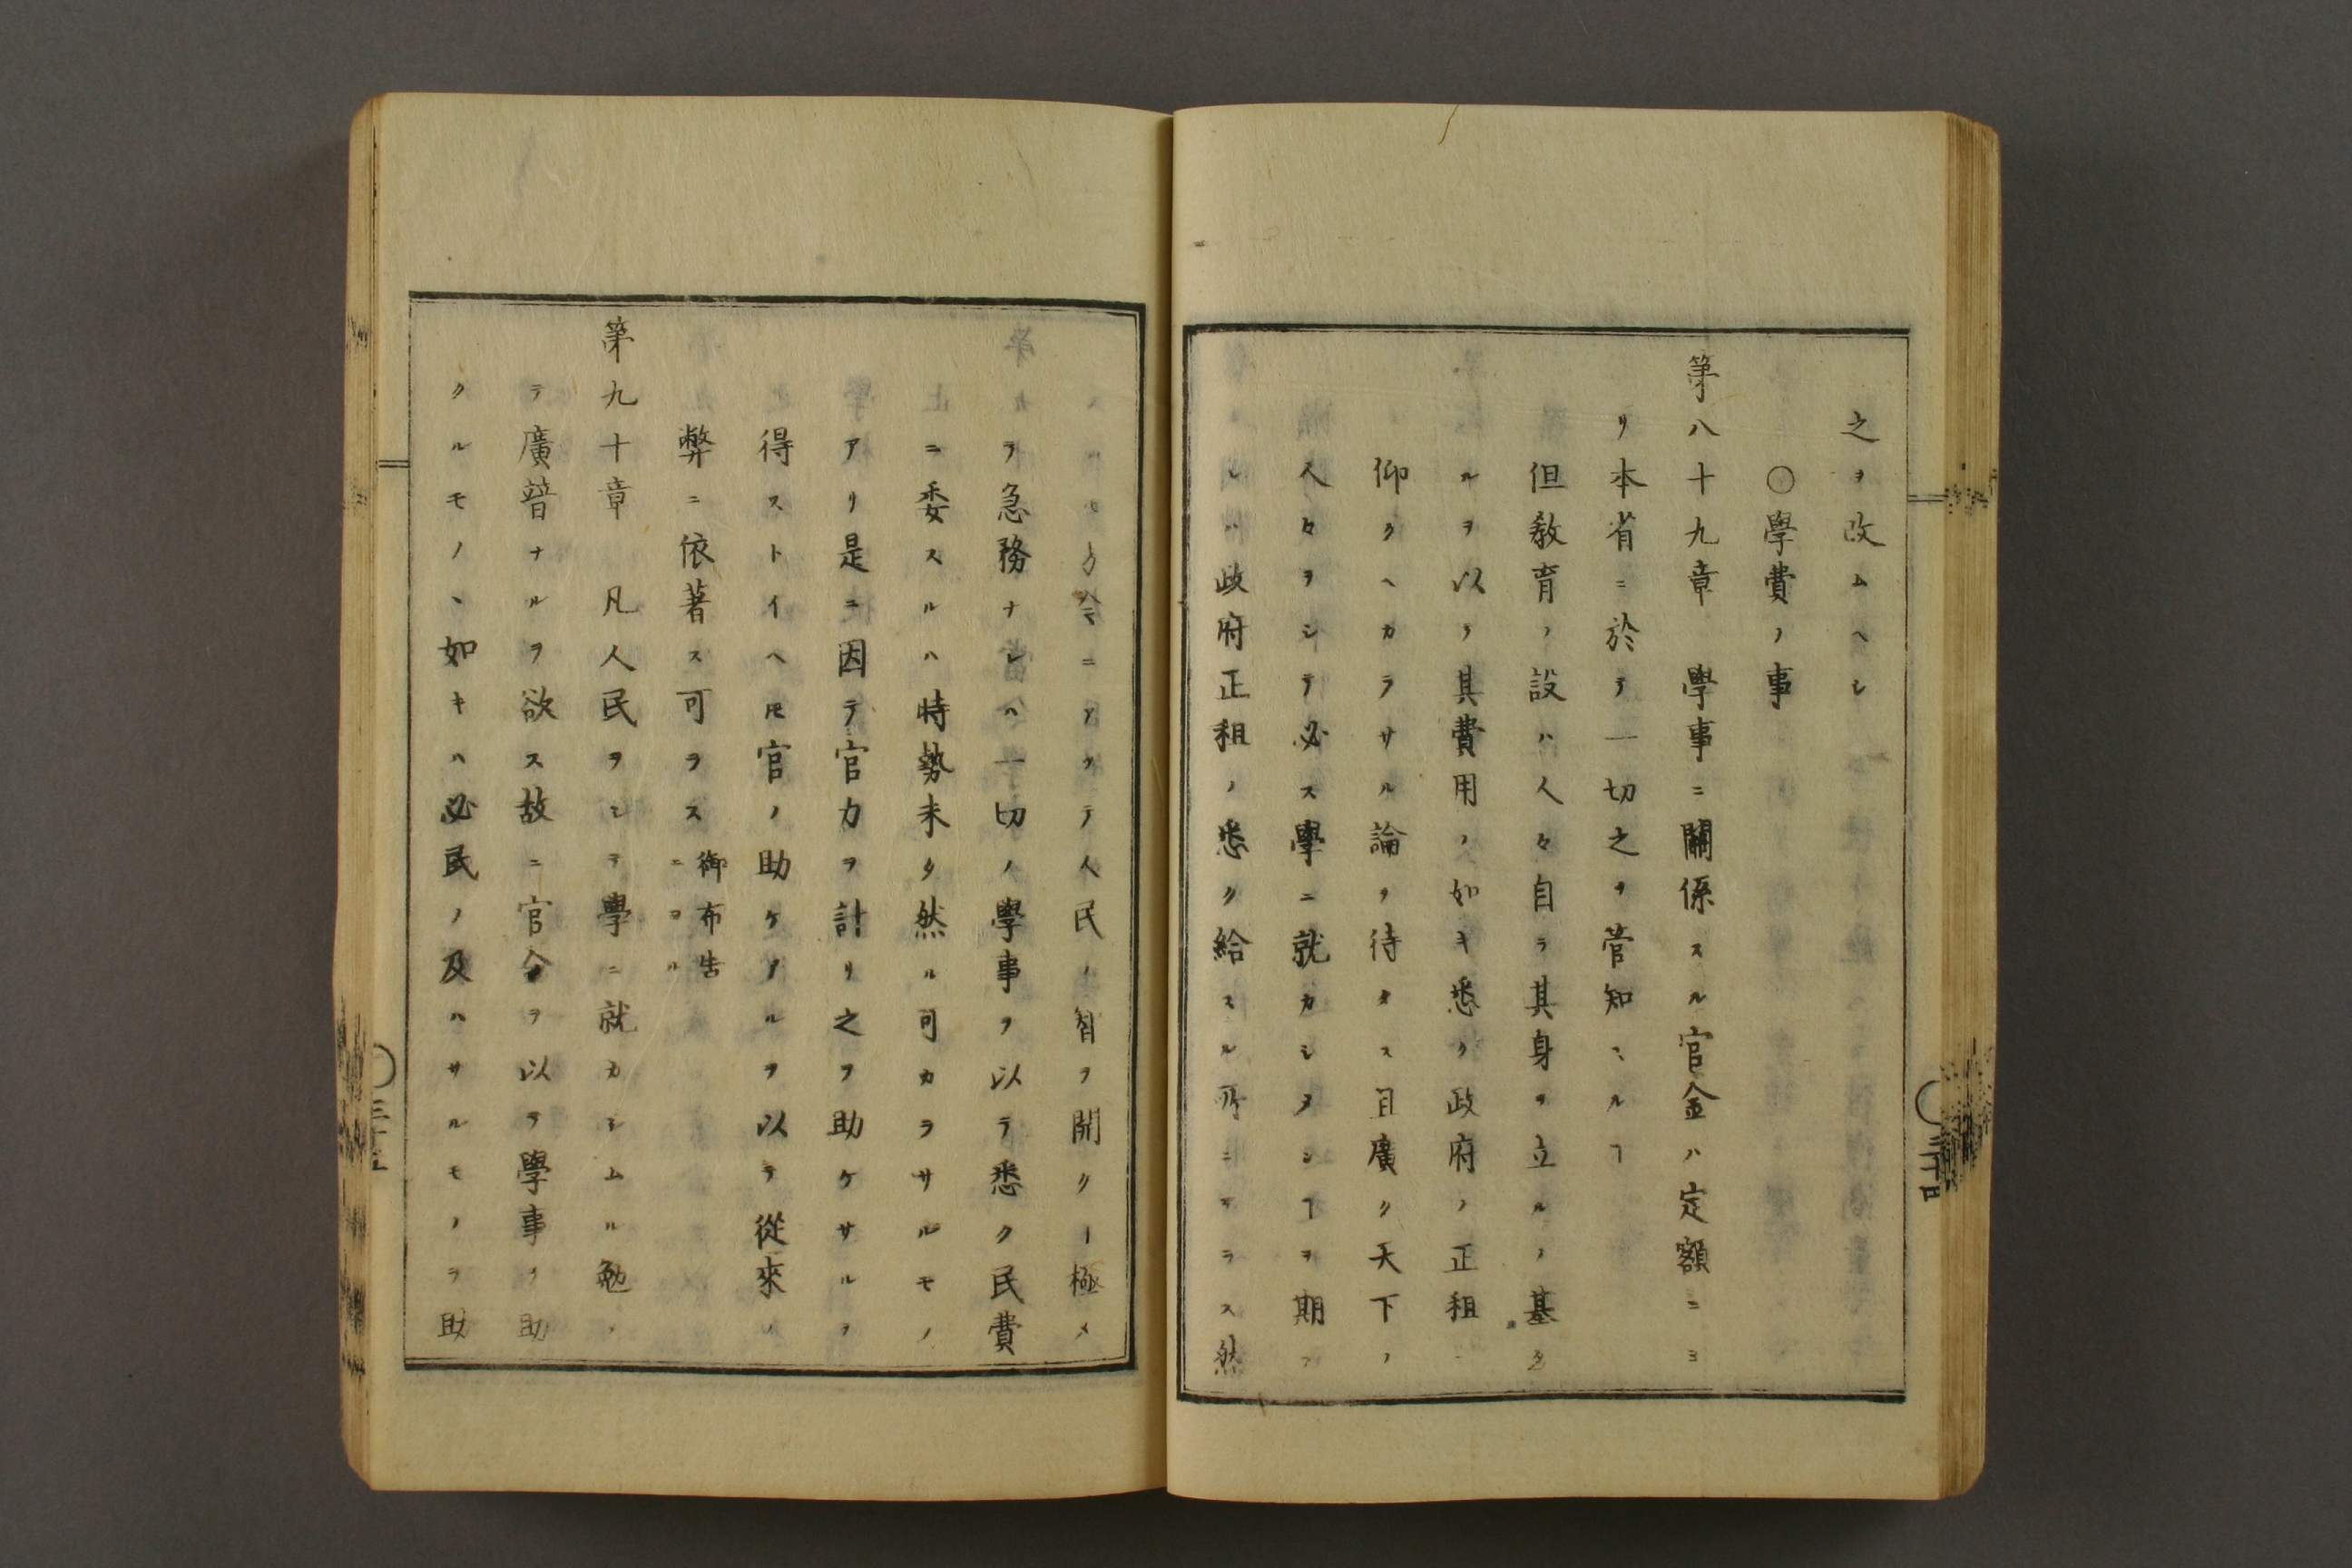 之ヲ改ムヘシ
〇學費ノ事
第八十九章　學事ニ關係スル官金ハ定額ニヨ
リ本省ニ於テ一切之ヲ管知スルヿ
但敎育ノ設ハ人々自ラ其身ヲ立ルノ基タ
ルヲ以テ其費用ノ如キ悉ク政府ノ正租
仰クヘカラサル論ヲ待タス且廣ク天下ノ
人々ヲシテ必ス學ニ就カシメンヿヲ期
レハ政府正租ノ悉ク給スル所ニアラス然
ニアリテ人民ノ智ヲ開クヿ極メ
テ急務ナレハ一切ノ學事ヲ以テ悉ク民費
ニ委スルハ時勢未タ然ル可カラサルモノ
アリ是ニ因テ官力ヲ計リ之ヲ助ケサルヲ
得ストイヘ𪜈官ノ助ケアルヲ以テ從來ノ
弊ニ依著ス可ラス御布告ニヨル
第九十章　凡人民ヲシテ學ニ就カシムル勉ノ
テ廣普ナルヲ欲ス故ニ官金ヲ以テ學事ヲ助
クルモノヽ如キハ必民ノ及ハサルモノヲ助
三十四
三十五